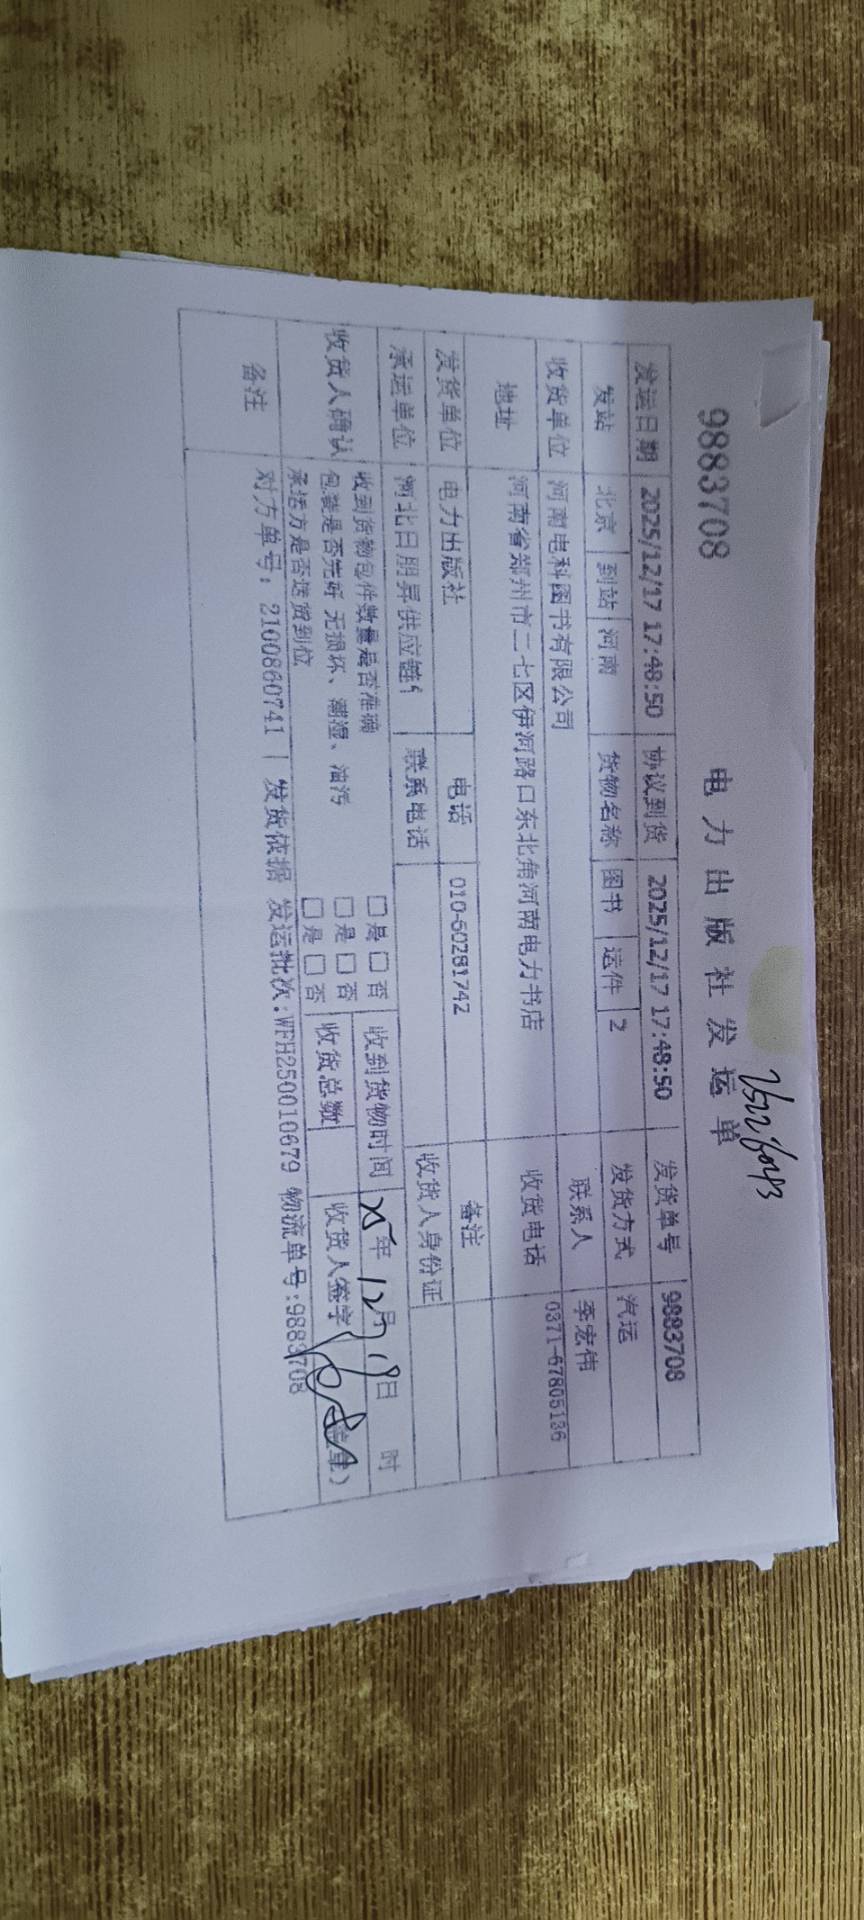 9883708
电力出版社发运单
发运日期 2025/12/17 17:48:50 协议到货 2025/12/17 17:48:50 发货单号 9883708
发站 北京 到站 河南 货物名称 图书 运件 2 发货方式 汽运
收货单位 河南电科图书有限公司 联系人 李宏伟
地址 河南省郑州市二七区伊河路口东北角河南电力书店 收货电话 0371-67805136
发货单位 电力出版社 电话 010-60281742 备注
承运单位 河北日朋昇供应链 联系电话 收货人身份证
收货人确认 收到货物包件数量是否准确 □是 □否 收到货物时间 25年 12月 19日 时
包装是否完好 无损坏、潮湿、油污 □是 □否 收货总数 收货人签字
承运方是否送货到位 □是 □否
备注 对方单号：2100860741 | 发货依据 发运批次:WFH250010679 物流单号:9883708